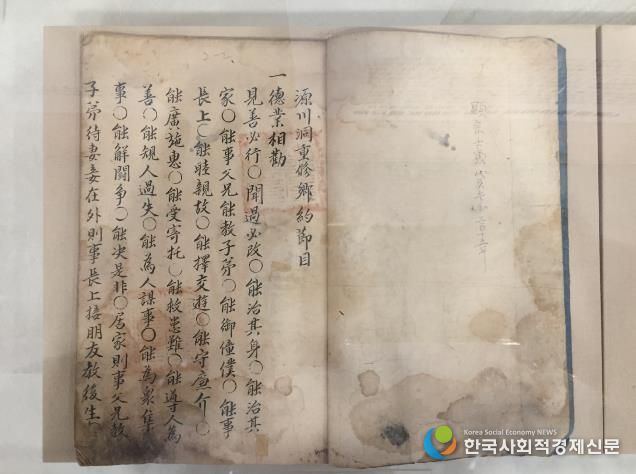 源川洞重修鄕約節目
一德業相勸
見善必行○聞過必改○能治其身○能治其
家○能事父兄能敎子弟○能御僮僕○能事
長上○能睦親故○能擇交遊○能守廉介○
能廣施惠○能受寄托○能救患難○能導人為
善○能規人過失○能為人謀事○能為衆集
事○能解鬪爭○能决是非○居家則事父兄敎
子弟待妻妾在外則事長上接朋友敎後生
Korea Social Economy NEWS
한국사회적경제신문